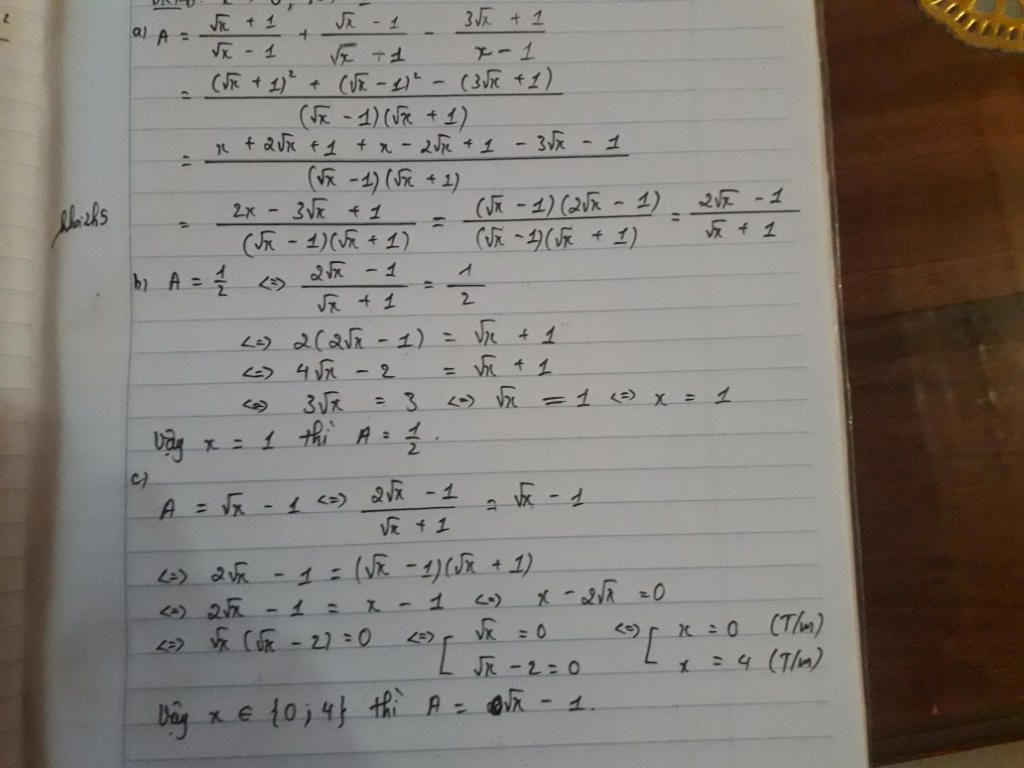 a) A = \frac{\sqrt{x} + 1}{\sqrt{x} - 1} + \frac{\sqrt{x} - 1}{\sqrt{x} + 1} - \frac{3\sqrt{x} + 1}{x - 1}
= \frac{(\sqrt{x} + 1)^2 + (\sqrt{x} - 1)^2 - (3\sqrt{x} + 1)}{(\sqrt{x} - 1)(\sqrt{x} + 1)}
= \frac{x + 2\sqrt{x} + 1 + x - 2\sqrt{x} + 1 - 3\sqrt{x} - 1}{(\sqrt{x} - 1)(\sqrt{x} + 1)}
= \frac{2x - 3\sqrt{x} + 1}{(\sqrt{x} - 1)(\sqrt{x} + 1)} = \frac{(\sqrt{x} - 1)(2\sqrt{x} - 1)}{(\sqrt{x} - 1)(\sqrt{x} + 1)} = \frac{2\sqrt{x} - 1}{\sqrt{x} + 1}
b) A = \frac{1}{2} <=> \frac{2\sqrt{x} - 1}{\sqrt{x} + 1} = \frac{1}{2}
<=> 2(2\sqrt{x} - 1) = \sqrt{x} + 1
<=> 4\sqrt{x} - 2 = \sqrt{x} + 1
<=> 3\sqrt{x} = 3 <=> \sqrt{x} = 1 <=> x = 1
Vậy x = 1 thì A = \frac{1}{2}.
c)
A = \sqrt{x} - 1 <=> \frac{2\sqrt{x} - 1}{\sqrt{x} + 1} = \sqrt{x} - 1
<=> 2\sqrt{x} - 1 = (\sqrt{x} - 1)(\sqrt{x} + 1)
<=> 2\sqrt{x} - 1 = x - 1 <=> x - 2\sqrt{x} = 0
<=> \sqrt{x}(\sqrt{x} - 2) = 0 <=> [ \sqrt{x} = 0 <=> [ x = 0 (T/m)
\sqrt{x} - 2 = 0 x = 4 (T/m)
Vậy x ∈ {0; 4} thì A = \sqrt{x} - 1.